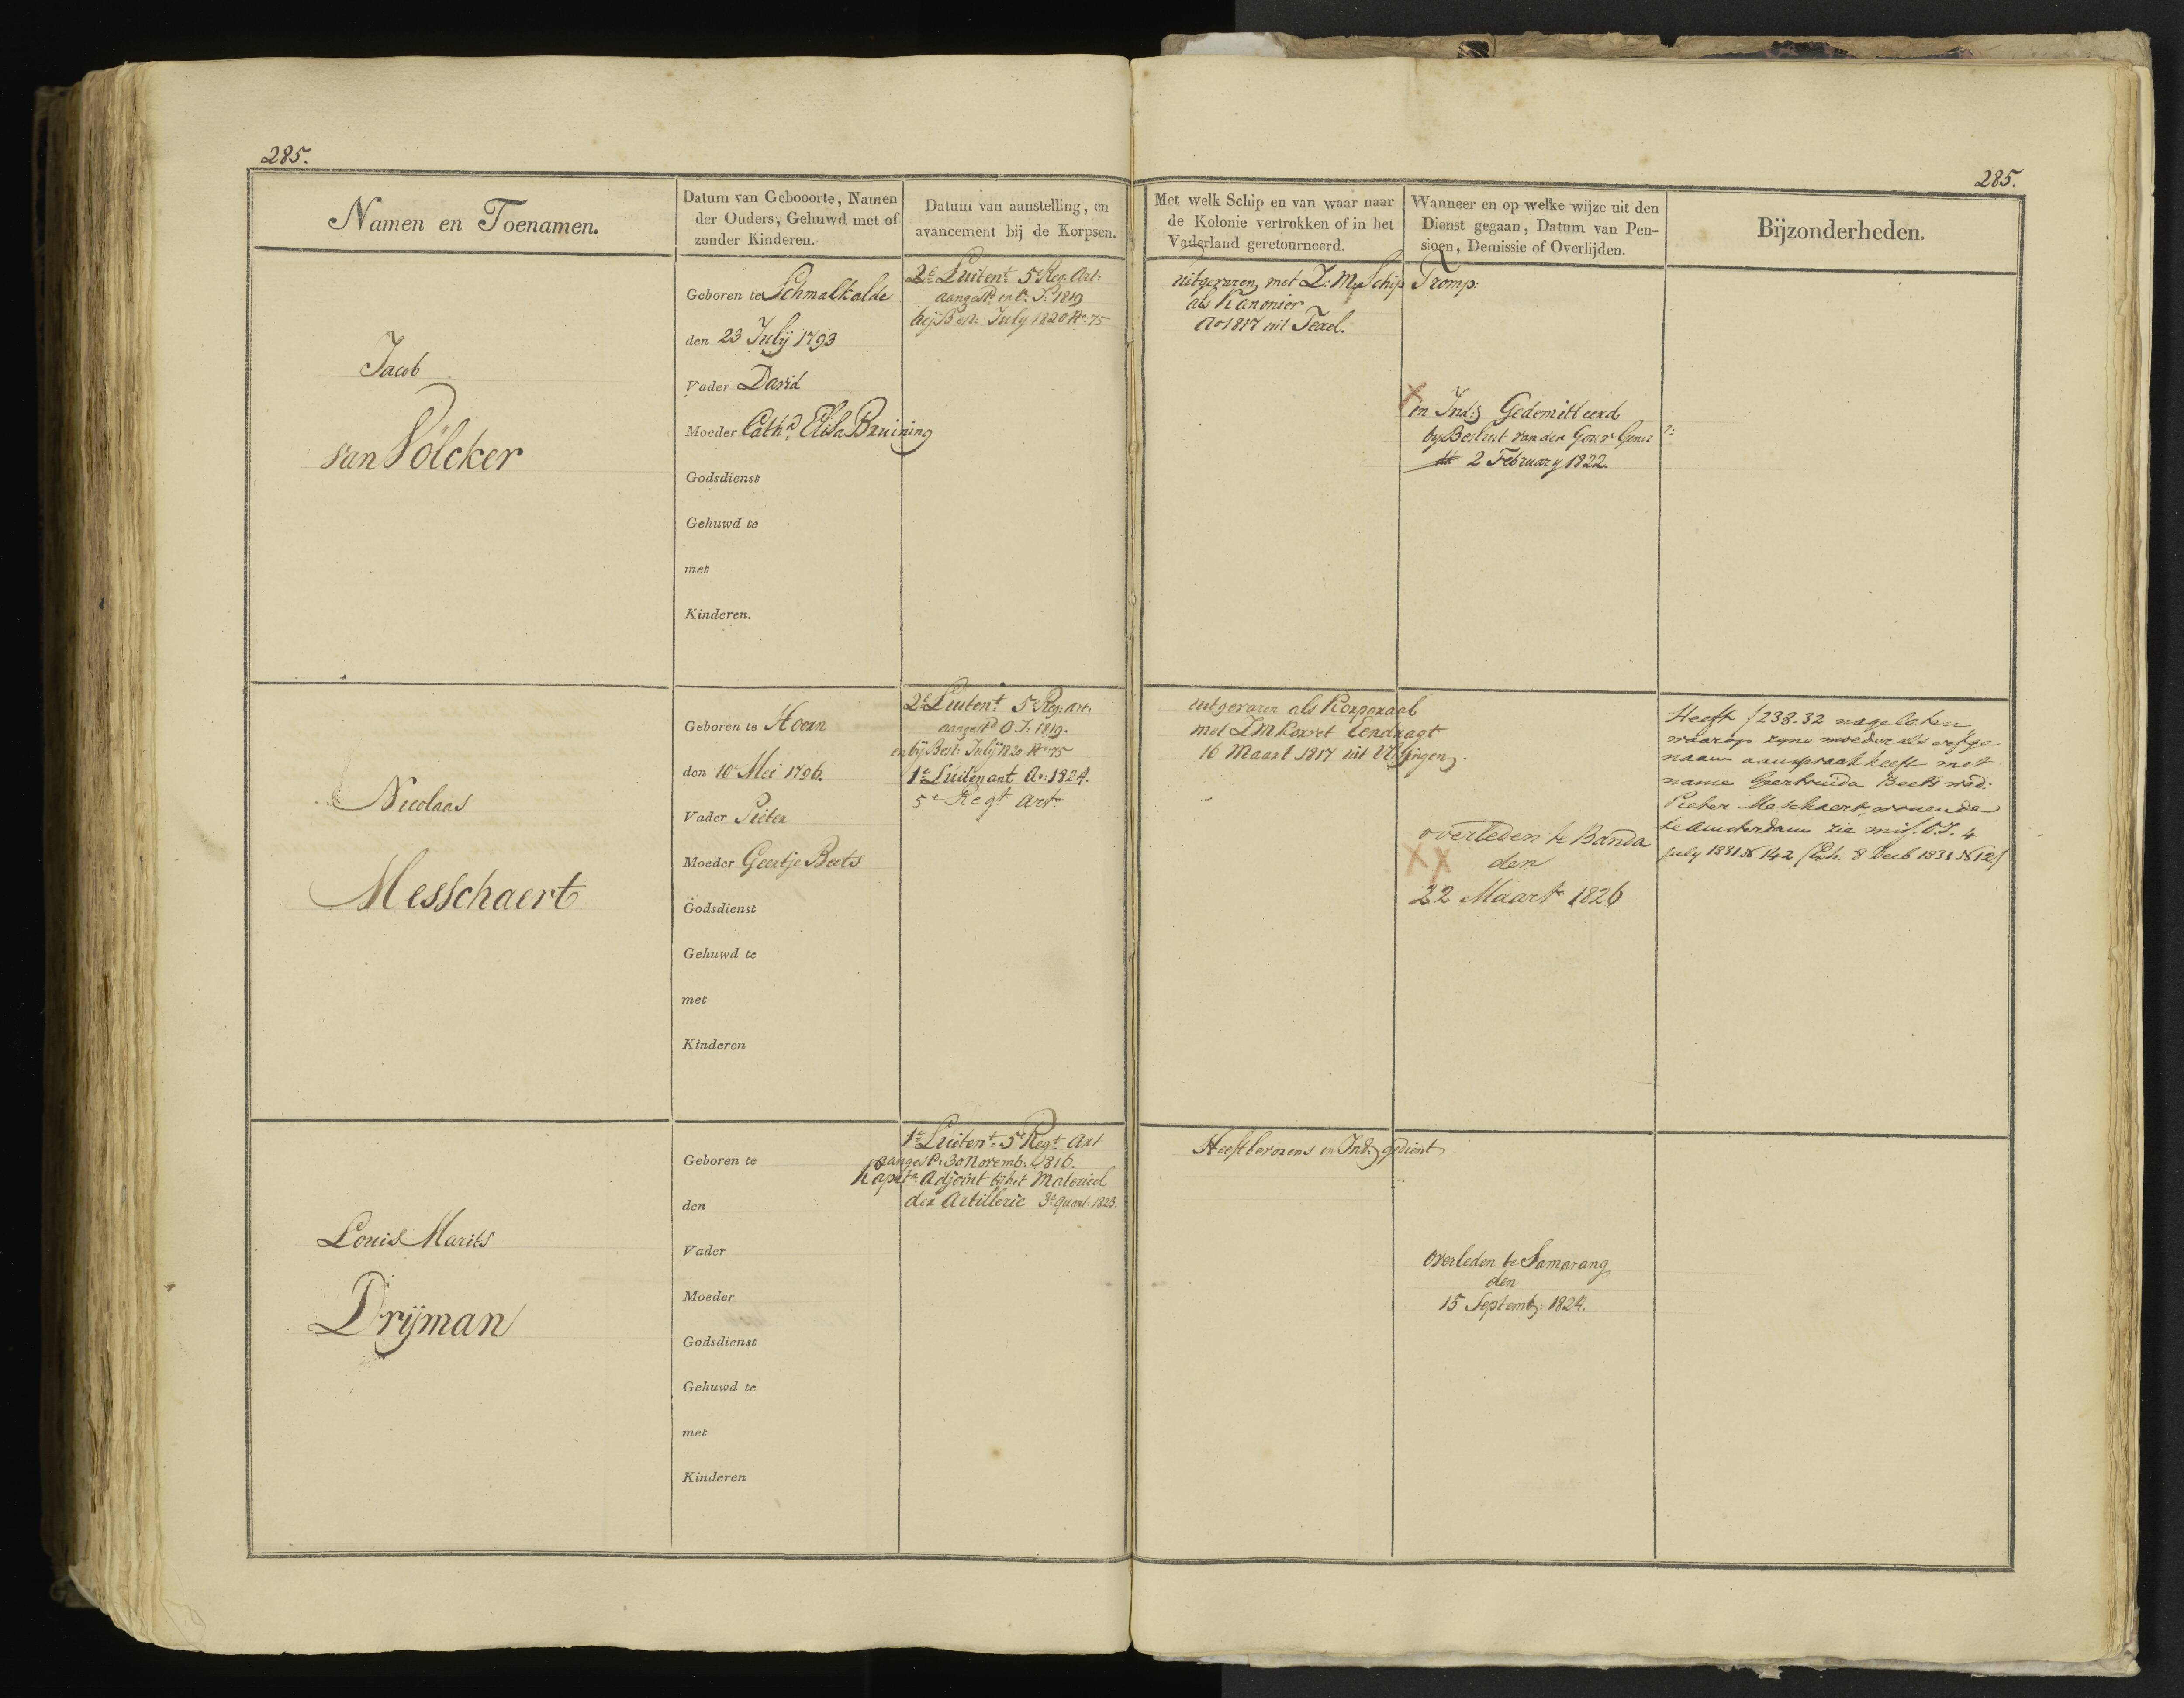 285.
285.
Namen en Toenamen.
Datum van Gebooorte, Namen
der Ouders, Gehuwd met of
zonder Kinderen.
Datum van aanstelling, en
avancement bij de Korpsen.
Met welk Schip en van waar naar
de Kolonie vertrokken of in het
Vaderland geretourneerd.
Wanneer en op welke wijze uit den
Dienst gegaan, Datum van Pen-
sioen, Demissie of Overlijden.
Bijzonderheden.
Jacob
van Völcker
Geboren te Schmalkalde
den 23 Julij 1793
Vader David
Moeder Cath.a Elisa Bruining
Godsdienst
Gehuwd te
met
Kinderen.
2e Luitent 5e Reg: Art:
aangestd en O: I: 1819
bij Besl: July 1820 No 75
uitgevaren met Z: M: Schip Tromp:
als Kanonier
Ao 1817 uit Texel.
in Ind: Gedemitteerd
by Besluit van den Gouvr Gener:
2 February 1822.
Nicolaas
Messchaert
Geboren te Hoorn
den 10e Mei 1796.
Vader Pieter
Moeder Geertje Beets
Godsdienst
Gehuwd te
met
Kinderen
2e Luitent 5e Reg: Art:
aangestd O I: 1819.
en bij Besl: Julij 1820 No 75
1e Luitenant Ao: 1824.
5e Regt Arte
uitgevaren als Korporaal
met Z M Korvet Eendragt
16 Maart 1817 uit Vlissingen.
overleden te Banda
den
22 Maart 1826
Heeft f 238.32 nagelaten
waarop zyne moeder als erfge
naam aanspraak heeft met
name Geertruida Beets wed:
Pieter Meschaert, wonende
te Amsterdam zie miss. O.I. 4
july 1831 No 142 (Exh: 8 Decb 1831 No 12)
Louis Marits
Drijman
Geboren te
den
Vader
Moeder
Godsdienst
Gehuwd te
met
Kinderen
1e Luitent 5e Regt Art
aangestd: 30 Novemb: 1816.
Kapite Adjoint bij het Materieel
der Artillerie 3e Quart: 1823.
Heeft bevorens in Ind: gedient
Overleden te Samarang
den
15 Septemb: 1824.